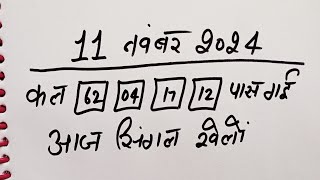 11 नवंबर 2024
कल 62 04 17 12 पास गई
आज सिंगल खेलों